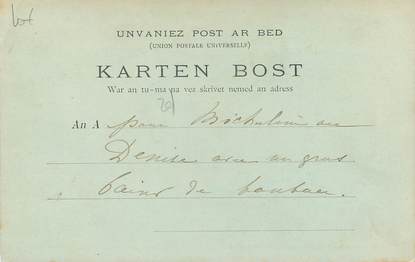 lot
UNVANIEZ POST AR BED
(UNION POSTALE UNIVERSELLE)
KARTEN BOST
War an tu-ma na vez skrivet nemed an adress
An A pour Micheline ou
Denise avec un gros
baiser de tonton.